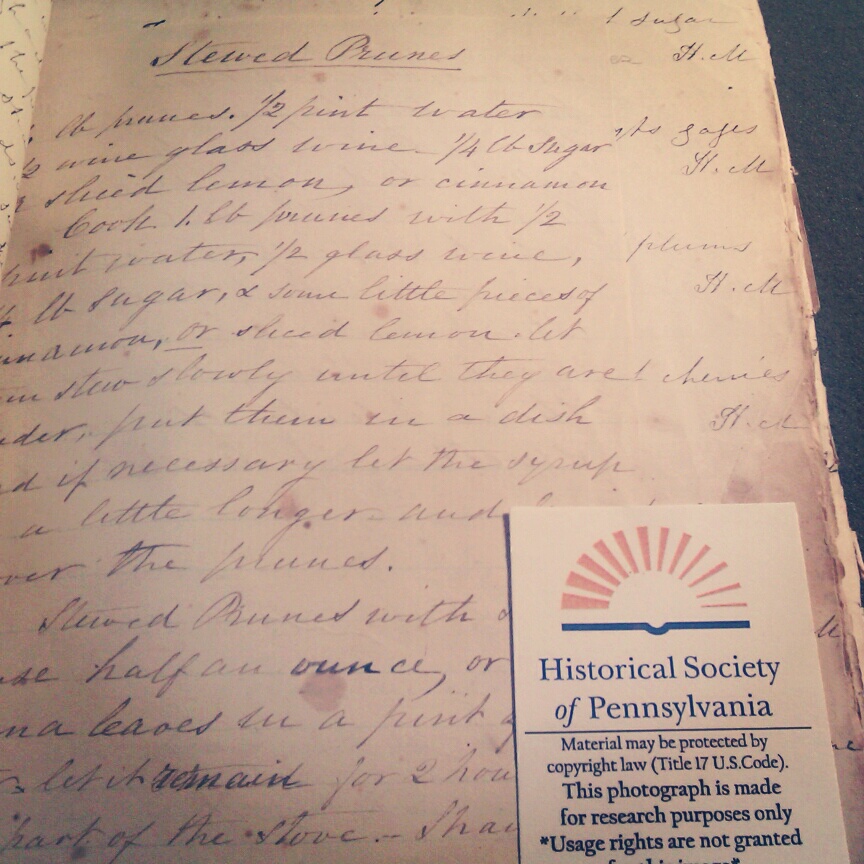 1 sugar
Stewed Prunes
H. M
lb prunes. 1/2 pint water
wine glass wine. 1/4 lb Sugar
gages
H. M
sliced lemon, or cinnamon
Cook 1. lb prunes with 1/2
pint water, 1/2 glass wine,
plums
lb Sugar, & some little pieces of
H. M
innamon, or sliced lemon let
em stew slowly until they are
cherries
der, put them in a dish
H. M
d if necessary let the syrup
a little longer and
ver the prunes.
Stewed Prunes with
use half an ounce, or
na leaves in a pint
let it remain for 2 hou
part of the stove. –
Historical Society
of Pennsylvania
Material may be protected by
copyright law (Title 17 U.S.Code).
This photograph is made
for research purposes only
*Usage rights are not granted